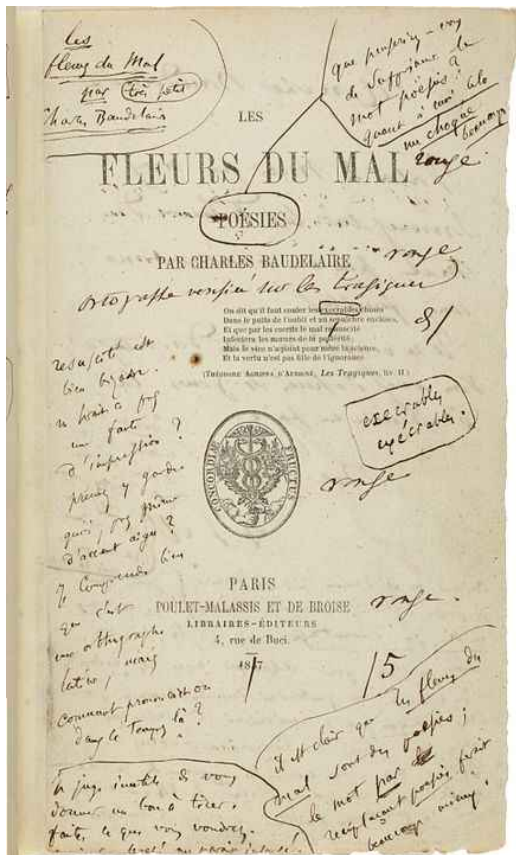 les
fleurs du Mal
par (très petit)
Charles Baudelaire
que penseriez-vous
de supprimer le
mot poésies?
quant à moi cela
me choque
beaucoup
LES
FLEURS DU MAL
rouge
POÉSIES
PAR CHARLES BAUDELAIRE
rouge
ortographe vérifiée sur les tragiques
On dit qu'il faut couler les execrables choses
Dans le puits de l'oubli et au sepulchre encloses,
Et que par les escrits le mal resuscité
Infectera les mœurs de la postérité;
Mais le vice n'a point pour mère la science,
Et la vertu n'est pas fille de l'ignorance.
(THÉODORE AGRIPPA D'AUBIGNÉ, Les Tragiques, liv. II.)
execrables
exécrables.
resuscité est
bien bizarre.
ne serait-ce pas
une faute
d'impression?
prenez y garde
quoi, pas même
d'accent aigu?
je comprends bien
que c'est
une orthographe
latine, mais
comment prononçait-on
dans le temps là?
CONCORDIÆ FRUCTUS
rouge
PARIS
POULET-MALASSIS ET DE BROISE
rouge.
LIBRAIRES-ÉDITEURS
4, rue de Buci.
1857
/5
il est clair que les fleurs du
mal sont des poésies;
le mot par
remplaçant poésies ferait
beaucoup mieux.
je juge inutile de vous
donner un bon à tirer.
faites ce que vous voudrez.